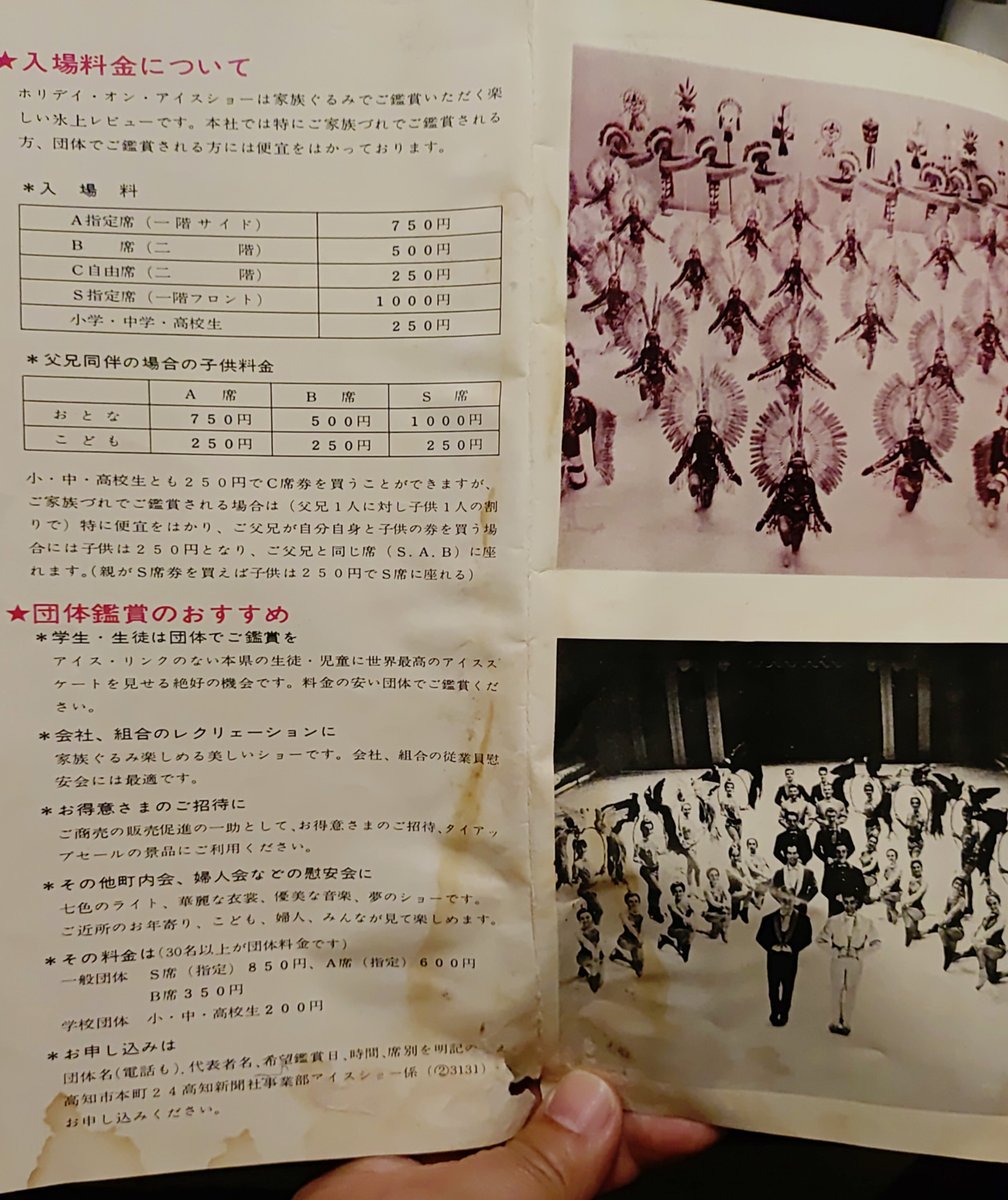 ★入場料金について
ホリデイ・オン・アイスショーは家族ぐるみでご鑑賞いただく楽
しい氷上レビューです。本社では特にご家族づれでご鑑賞される
方、団体でご鑑賞される方には便宜をはかっております。
＊入　場　料
A指定席（一階サイド） 750円
B　席（二　　階） 500円
C自由席（二　　階） 250円
S指定席（一階フロント） 1000円
小学・中学・高校生 250円
＊父兄同伴の場合の子供料金
A　席 B　席 S　席
おとな 750円 500円 1000円
こども 250円 250円 250円
小・中・高校生とも250円でC席券を買うことができますが、
ご家族づれでご鑑賞される場合は（父兄1人に対し子供1人の割
りで）特に便宜をはかり、ご父兄が自分自身と子供の券を買う場
合には子供は250円となり、ご父兄と同じ席（S.A.B）に座
れます。（親がS席券を買えば子供は250円でS席に座れる）
★団体鑑賞のおすすめ
＊学生・生徒は団体でご鑑賞を
アイス・リンクのない本県の生徒・児童に世界最高のアイスス
ケートを見せる絶好の機会です。料金の安い団体でご鑑賞くだ
さい。
＊会社、組合のレクリェーションに
家族ぐるみ楽しめる美しいショーです。会社、組合の従業員慰
安会には最適です。
＊お得意さまのご招待に
ご商売の販売促進の一助として、お得意さまのご招待、タイアッ
プセールの景品にご利用ください。
＊その他町内会、婦人会などの慰安会に
七色のライト、華麗な衣裳、優美な音楽、夢のショーです。
ご近所のお年寄り、こども、婦人、みんなが見て楽しめます。
＊その料金は（30名以上が団体料金です）
一般団体　S席（指定）850円、A席（指定）600円
B席350円
学校団体　小・中・高校生200円
＊お申し込みは
団体名（電話も）、代表者名、希望鑑賞日、時間、席別を明記の
高知市本町24高知新聞社事業部アイスショー係（②3131）
お申し込みください。